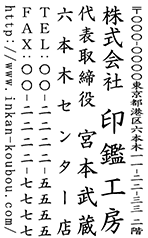 〒〇〇〇-〇〇〇〇東京都港区六本木一-二二-三三 二階
株式会社 印鑑工房
代表取締役 宮本武蔵
六本木センター店
TEL:〇〇-二二二二-五五五五
FAX:〇〇-二二二二-五五五五
http://www.inkan-koubou.com/